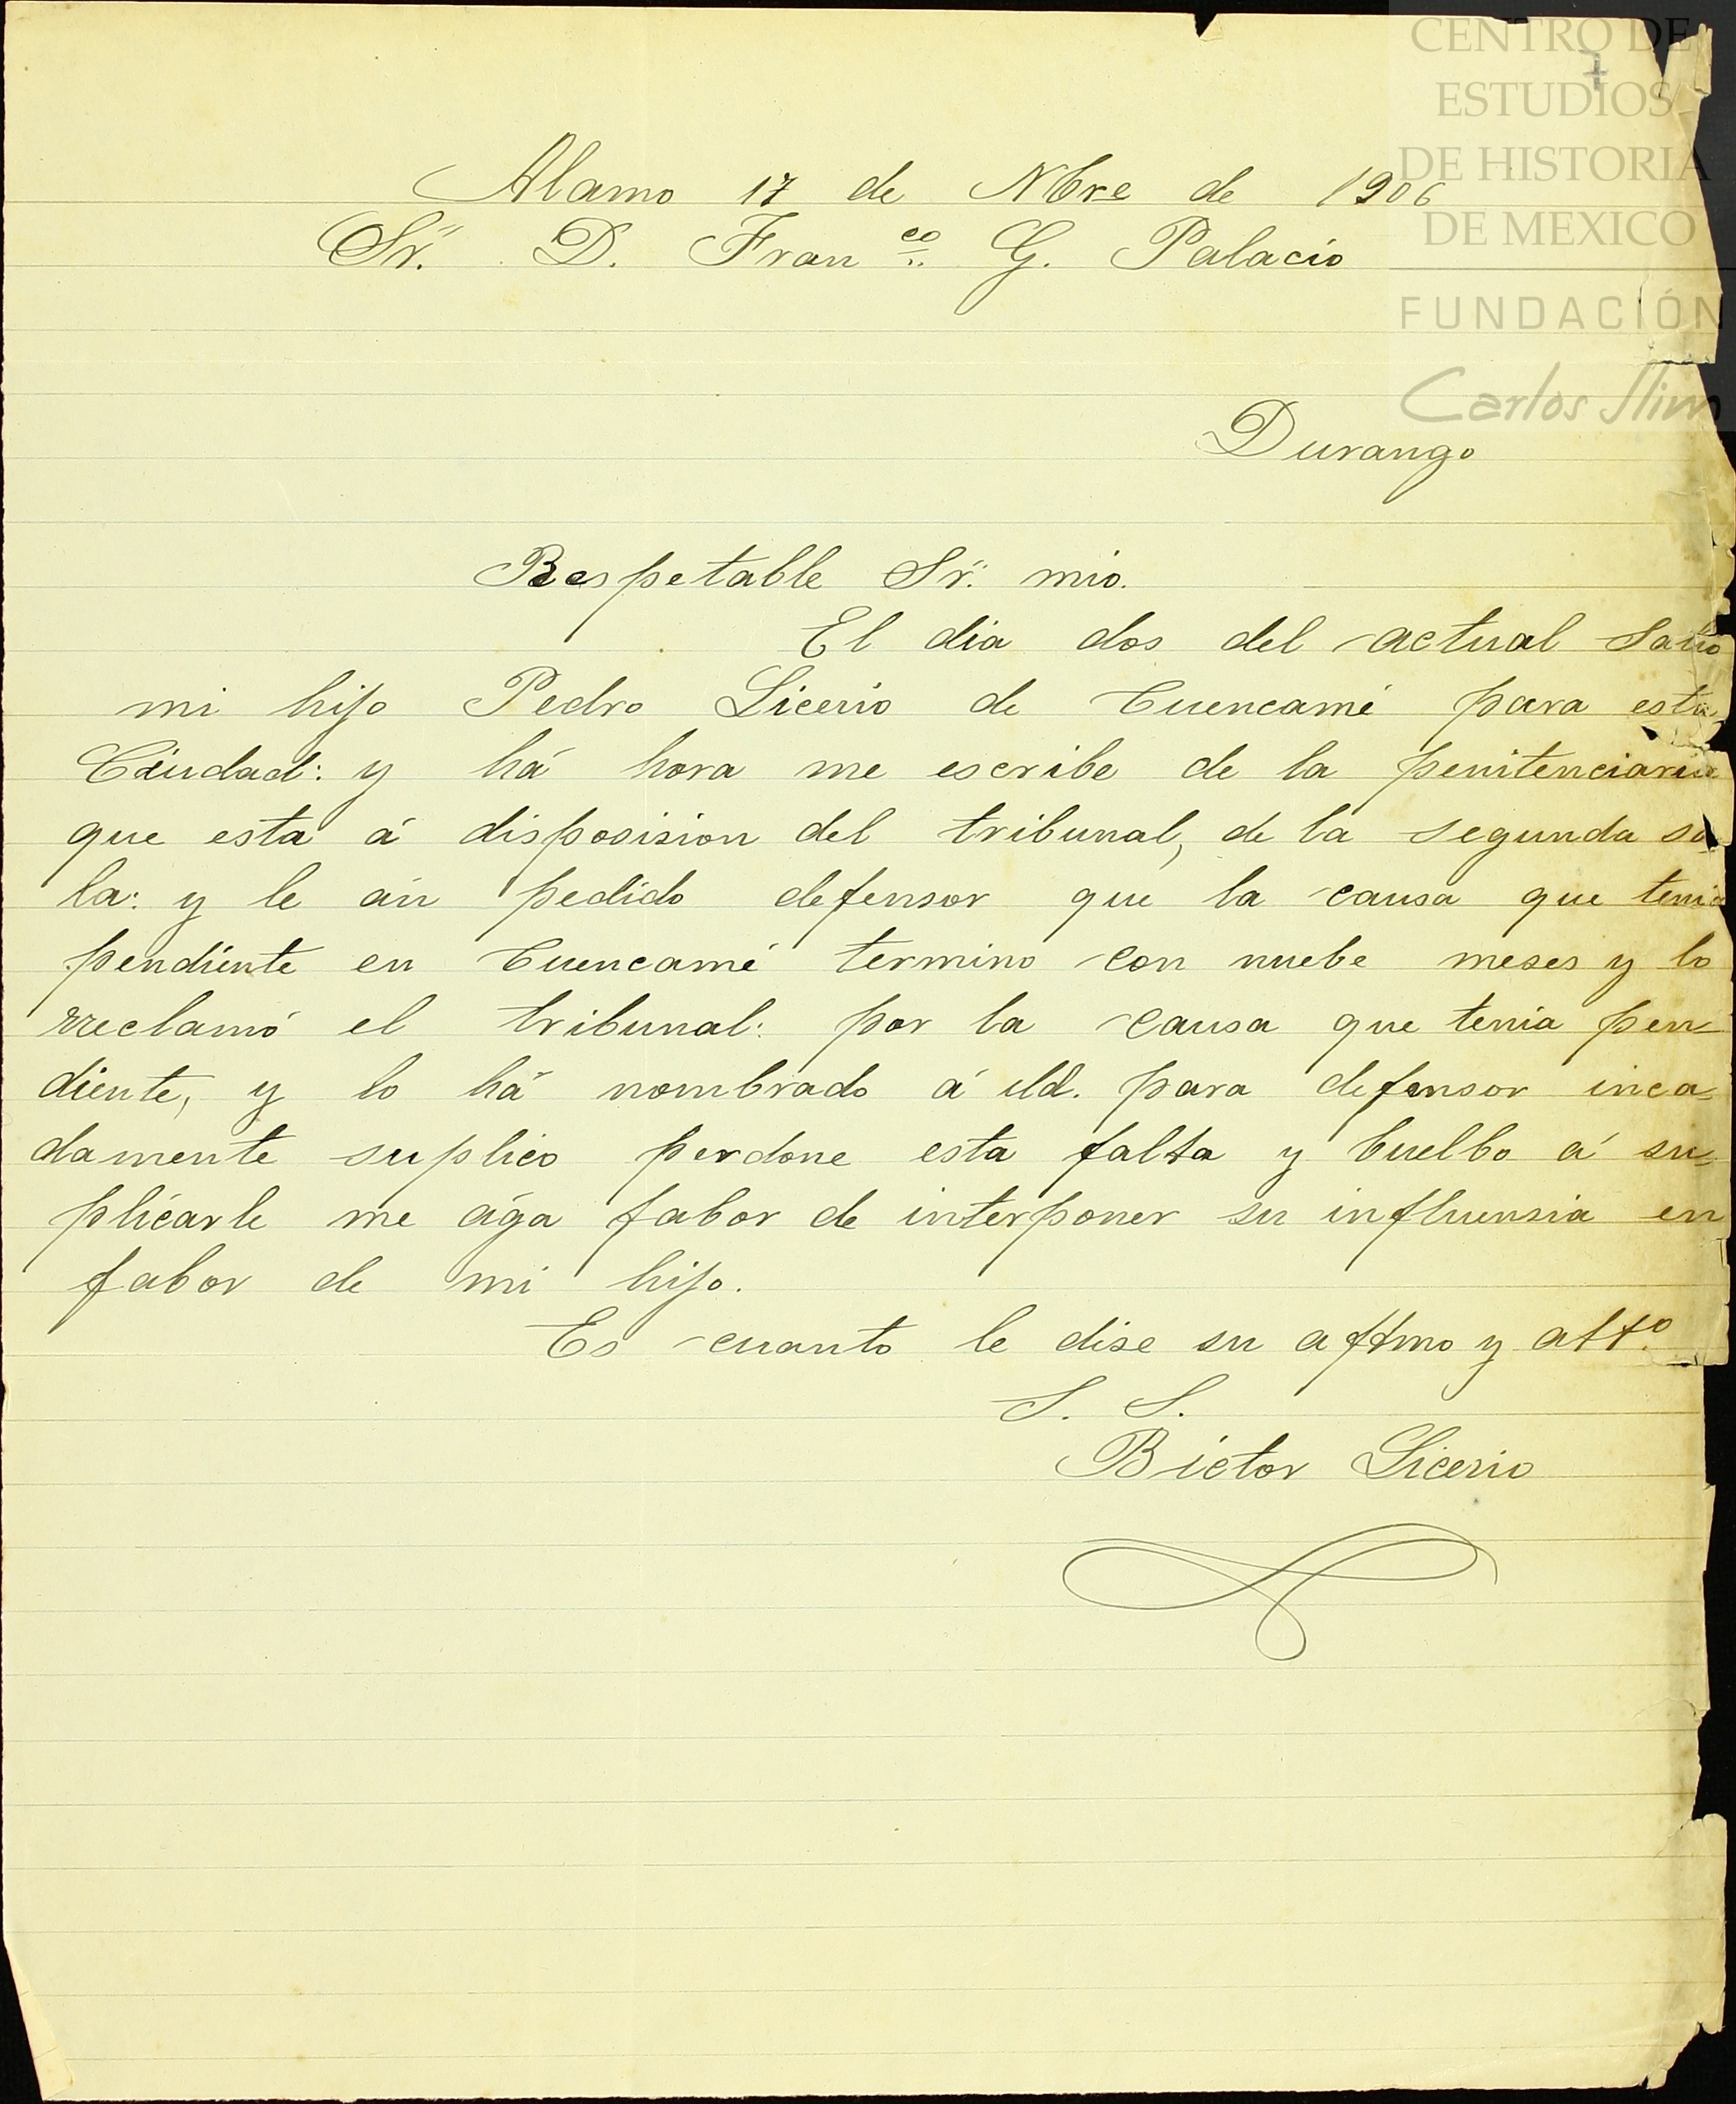 CENTRO DE
ESTUDIOS
DE HISTORIA
DE MEXICO
FUNDACIÓN
Carlos Slim
Alamo 17 de Nbre de 1906
Sr. D. Fran co G. Palacio
Durango
Respetable Sr. mio.
El dia dos del actual salio
mi hijo Pedro Licerio de Cuencamé para esta
Ciudad: y há hora me escribe de la penitenciaria
que esta á disposision del tribunal, de la segunda sa
la: y le án pedido defensor que la causa que tenia
pendiente en Cuencamé termino con nuebe meses y lo
rreclamó el tribunal: por la causa que tenia pen-
diente, y lo há nombrado á Ud. para defensor inca-
damente suplico perdone esta falta y buelbo á su-
plicarle me ága fabor de interponer su influensia en
fabor de mi hijo.
Es cuanto le dise su afftmo y atto.
S. S.
Bictor Licerio